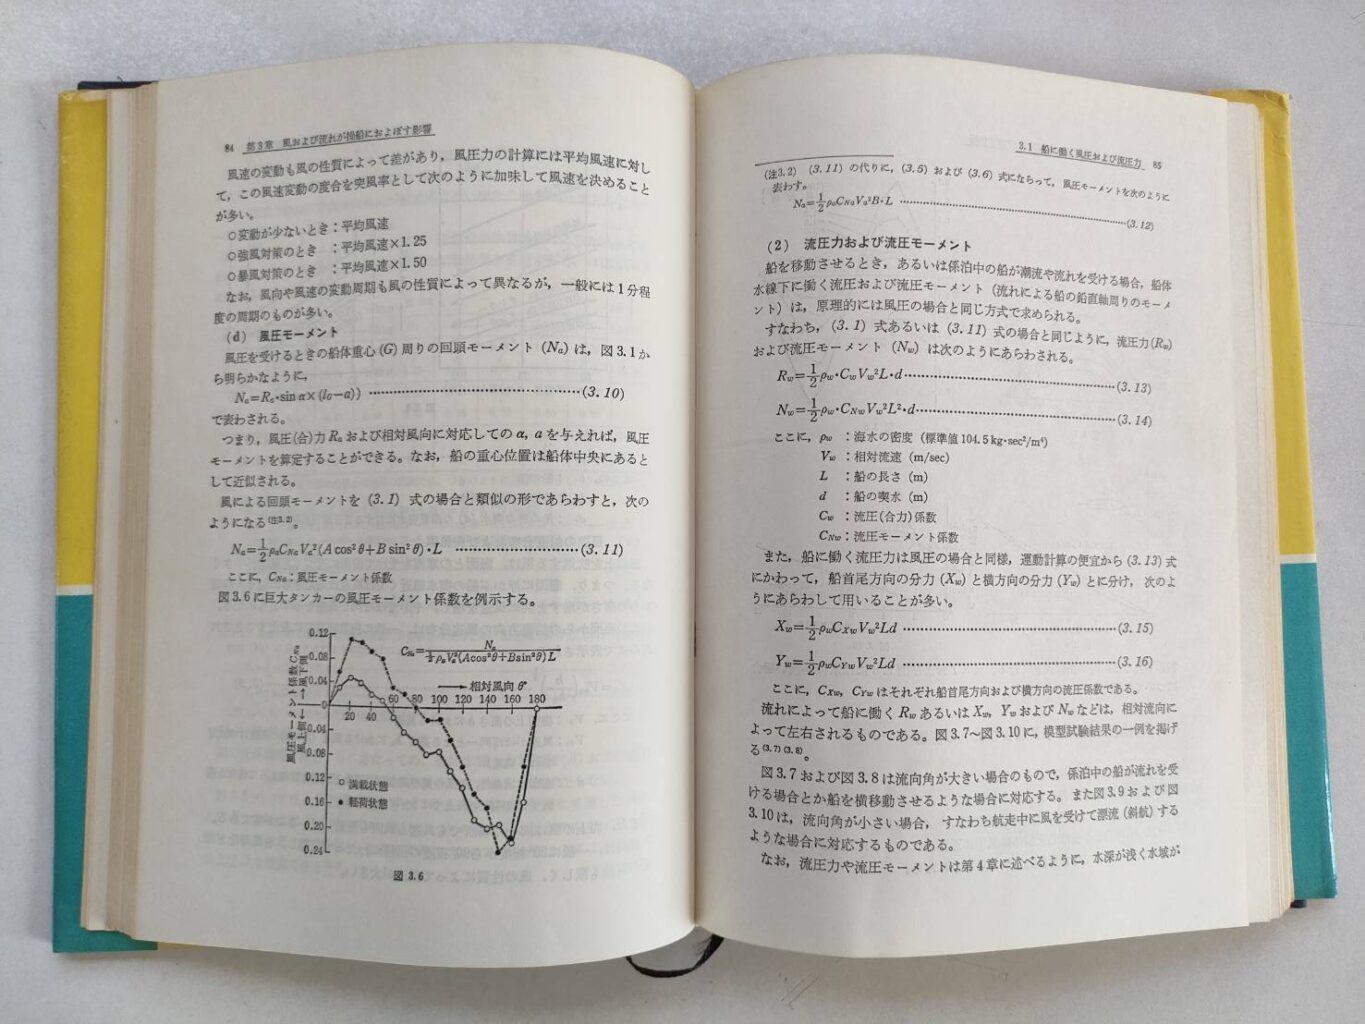 84 第3章 風および流れが操船におよぼす影響
風速の変動も風の性質によって差があり，風圧力の計算には平均風速に対し
て，この風速変動の度合を突風率として次のように加味して風速を決めること
が多い。
○変動が少ないとき：平均風速
○強風対策のとき ：平均風速×1.25
○暴風対策のとき ：平均風速×1.50
なお，風向や風速の変動周期も風の性質によって異なるが，一般には1分程
度の周期のものが多い。
(d) 風圧モーメント
風圧を受けるときの船体重心(G)周りの回頭モーメント(Na)は，図3.1か
ら明らかなように，
Na=Ra·sin α×(lG−a)) ……………………………(3.10)
で表わされる。
つまり，風圧(合)力Raおよび相対風向に対応してのα, aを与えれば，風圧
モーメントを算定することができる。なお，船の重心位置は船体中央にあると
して近似される。
風による回頭モーメントを (3.1) 式の場合と類似の形であらわすと，次の
ようになる(注3.2)。
Na=1/2 ρaCNaVa²(A cos²θ+B sin²θ)·L ………………(3.11)
ここに，CNa：風圧モーメント係数
図3.6に巨大タンカーの風圧モーメント係数を例示する。
CNa=Na/(1/2 ρaVa²(Acos²θ+Bsin²θ)L)
→相対風向 θ°
風圧モーメント係数 CNa
風上側← →風下側
0.12
0.08
0.04
0
0.04
0.08
0.12
0.16
0.20
0.24
20 40 60 80 100 120 140 160 180
○ 満載状態
● 軽荷状態
図 3.6
3.1 船に働く風圧および流圧力 85
(注3.2) (3.11) の代りに，(3.5) および (3.6) 式にならって，風圧モーメントを次のように
表わす。
Na=1/2 ρaCNaVa²B·L ……………………………(3.12)
(2) 流圧力および流圧モーメント
船を移動させるとき，あるいは係泊中の船が潮流や流れを受ける場合，船体
水線下に働く流圧および流圧モーメント (流れによる船の鉛直軸周りのモーメ
ント) は，原理的には風圧の場合と同じ方式で求められる。
すなわち，(3.1) 式あるいは (3.11) 式の場合と同じように，流圧力(Rw)
および流圧モーメント (Nw) は次のようにあらわされる。
Rw=1/2 ρw·CwVw²L·d……………………………(3.13)
Nw=1/2 ρw·CNwVw²L²·d……………………………(3.14)
ここに，ρw ：海水の密度 (標準値 104.5 kg·sec²/m⁴)
Vw ：相対流速 (m/sec)
L ：船の長さ (m)
d ：船の喫水 (m)
Cw ：流圧(合力)係数
CNw：流圧モーメント係数
また，船に働く流圧力は風圧の場合と同様，運動計算の便宜から (3.13) 式
にかわって，船首尾方向の分力 (Xw) と横方向の分力 (Yw) とに分け，次のよ
うにあらわして用いることが多い。
Xw=1/2 ρwCXwVw²Ld ……………………………(3.15)
Yw=1/2 ρwCYwVw²Ld ……………………………(3.16)
ここに，CXw，CYwはそれぞれ船首尾方向および横方向の流圧係数である。
流れによって船に働く Rw あるいは Xw, Yw および Nw などは，相対流向に
よって左右されるものである。図3.7～図3.10に，模型試験結果の一例を掲げ
る(3.7)(3.8)。
図3.7および図3.8は流向角が大きい場合のもので，係泊中の船が流れを受
ける場合とか船を横移動させるような場合に対応する。また図3.9および図
3.10は，流向角が小さい場合，すなわち航走中に風を受けて漂流(斜航)する
ような場合に対応するものである。
なお，流圧力や流圧モーメントは第4章に述べるように，水深が浅く水域が